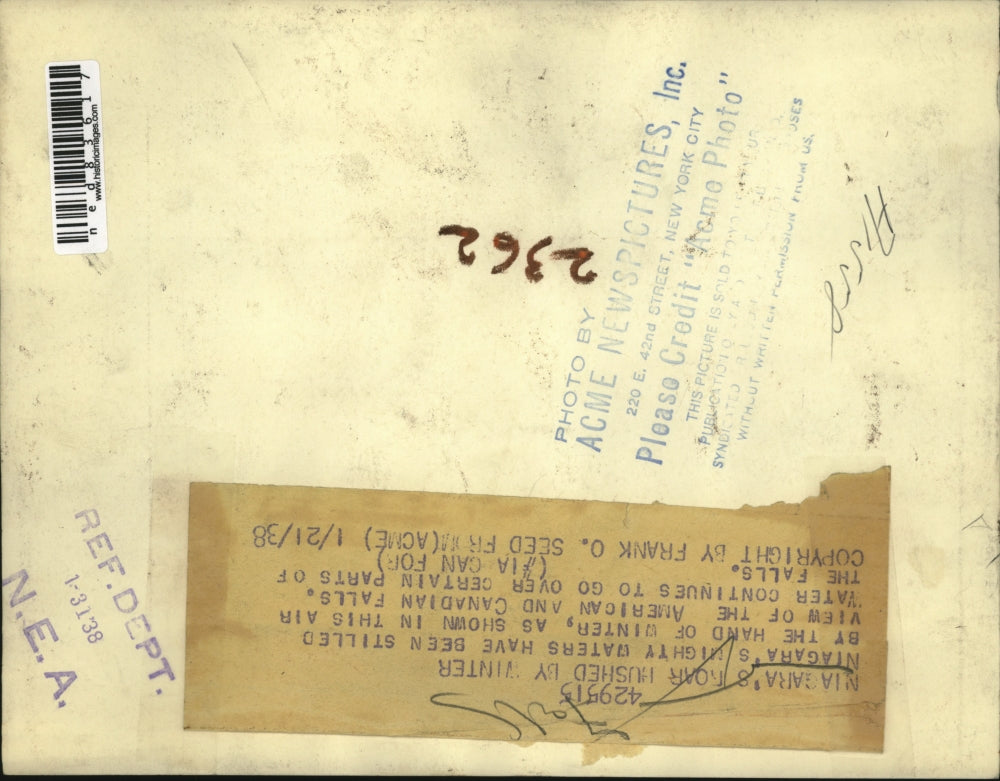 ned83617
www.historicimages.com
2362
PHOTO BY
ACME NEWSPICTURES, Inc.
220 E. 42nd STREET, NEW YORK CITY
Please Credit "Acme Photo"
THIS PICTURE IS SOLD TO
PUBLICATION
SYNDICATED
USES
WITHOUT WRITTEN PERMISSION FROM US.
429515
NIAGARA'S ROAR HUSHED BY WINTER
NIAGARA'S MIGHTY WATERS HAVE BEEN STILLED
BY THE HAND OF WINTER, AS SHOWN IN THIS AIR
VIEW OF THE AMERICAN AND CANADIAN FALLS.
WATER CONTINUES TO GO OVER CERTAIN PARTS OF
THE FALLS. (#1A CAN FOR)
COPYRIGHT BY FRANK O. SEED FROM (ACME) 1/21/38
REF. DEPT.
1-31'38
N.E.A.